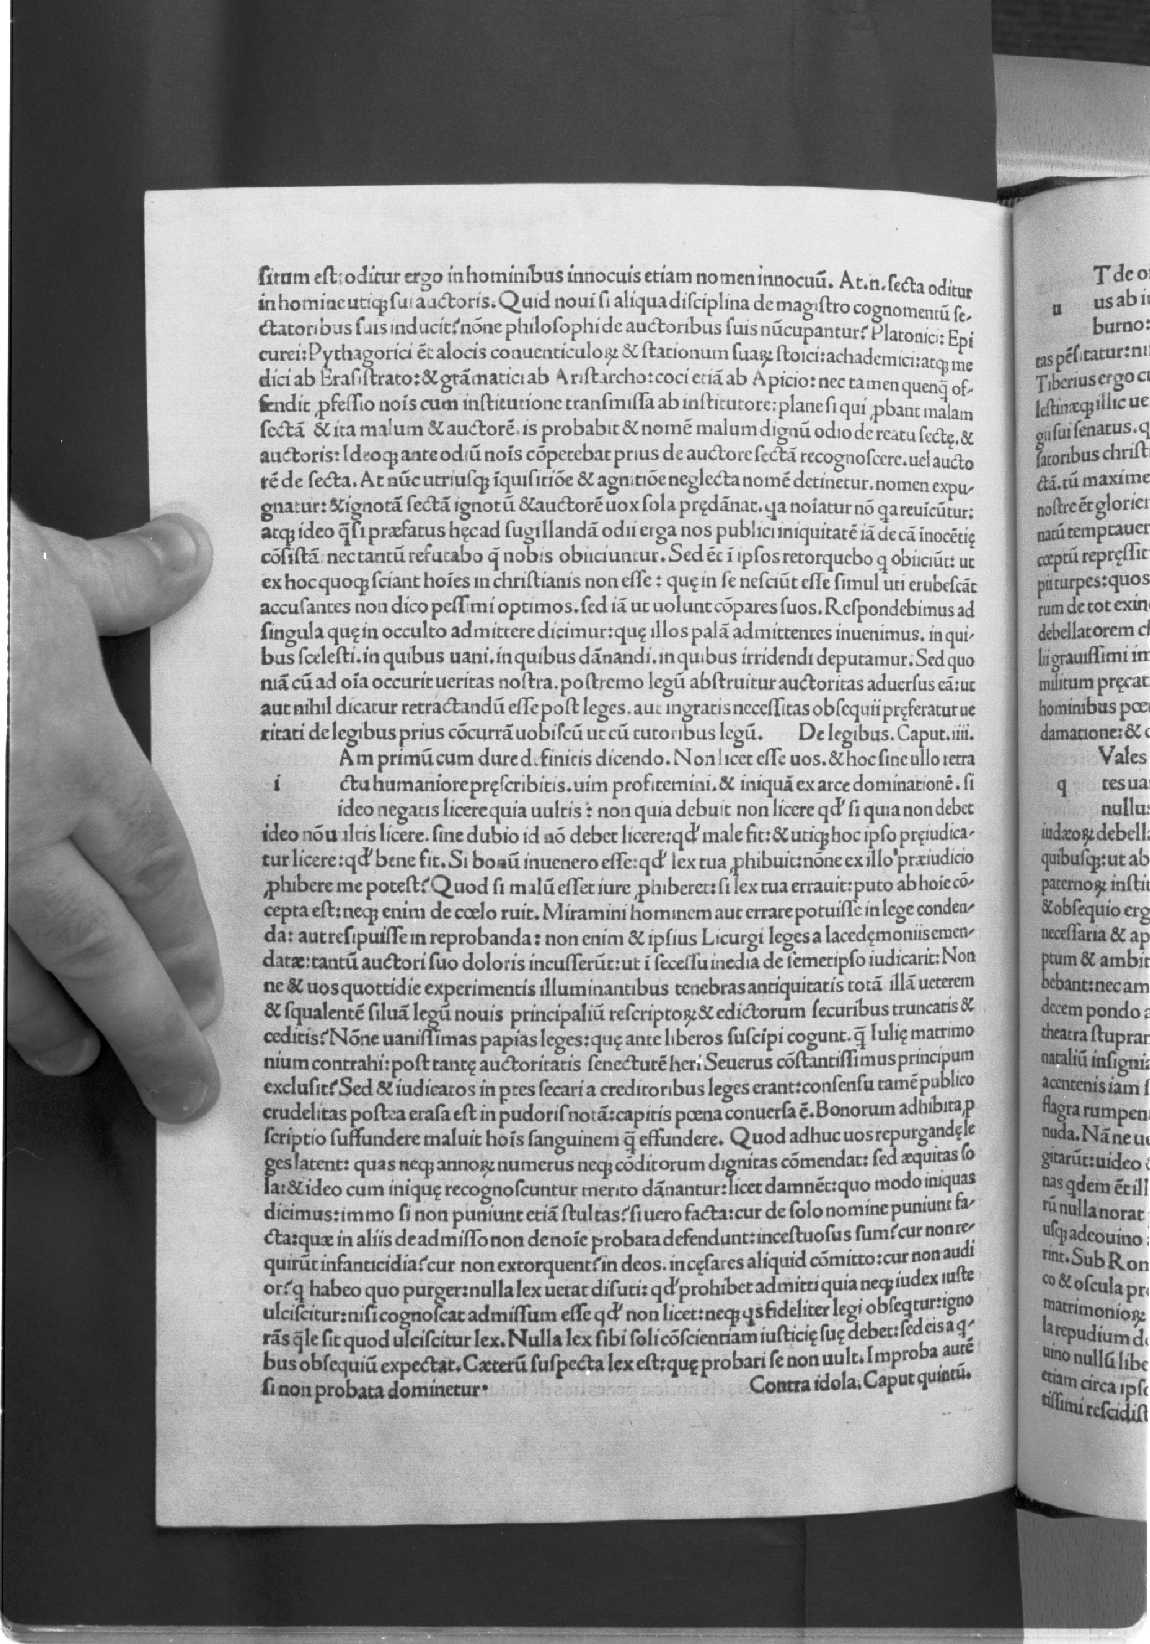 situm est: oditur ergo in hominibus innocuis etiam nomen innocuũ. At.n. secta oditur
in homine utiqꝫ sui auctoris. Quid noui si aliqua disciplina de magistro cognomentũ se-
ctatoribus suis inducit? nõne philosophi de auctoribus suis nũcupantur? Platonici: Epi
curei: Pythagorici ẽt a locis conuenticuloꝝ & stationum suaꝝ stoici: achademici: atqꝫ me
dici ab Erasistrato: & grãmatici ab Aristarcho: coci etiã ab Apicio: nec tamen quenq̃ of-
fendit ꝓfessio nois cum institutione transmissa ab institutore: plane si qui ꝓbant malam
sectã & ita malum & auctorẽ. is probabit & nomẽ malum dignũ odio de reatu sectę, &
auctoris: Ideoqꝫ ante odiũ nois cõpetebat prius de auctore sectã recognoscere. uel aucto
rẽ de secta. At nũc utriusqꝫ ĩquisitiõe & agnitiõe neglecta nomẽ detinetur. nomen expu-
gnatur: & ignotã sectã ignotũ & auctorẽ uox sola prędãnat. qa noiatur nõ qa reuicũtur:
atqꝫ ideo q̃si præfatus hęc ad sugillandã odii erga nos publici iniquitatẽ iã de cã inocẽtię
cõsistã: nec tantũ refutabo q̃ nobis obiiciuntur. Sed ẽt ĩ ipsos retorquebo q̃ obiiciũt: ut
ex hoc quoqꝫ sciant hoies in christianis non esse: quę in se nesciũt esse simul uti erubescãt
accusantes non dico pessimi optimos. sed iã ut uolunt cõpares suos. Respondebimus ad
singula quę in occulto admittere dicimur: quę illos palã admittentes inuenimus. in qui-
bus scelesti. in quibus uani. in quibus dãnandi. in quibus irridendi deputamur. Sed quo
niã cũ ad oĩa occurit ueritas nostra. postremo legũ abstruitur auctoritas aduersus eã: ut
aut nihil dicatur retractandũ esse post leges. aut ingratis necessitas obsequii pręferatur ue
ritati de legibus prius cõcurrã uobiscũ ut cũ tutoribus legũ. De legibus. Caput. iiii.
Am primũ cum dure definitis dicendo. Non licet esse uos. & hoc sine ullo retra
i ctu humaniore pręscribitis. uim profitemini. & iniquã ex arce dominationẽ. si
ideo negatis licere quia uultis: non quia debuit non licere qđ si quia non debet
ideo nõ uultis licere. sine dubio id nõ debet licere: qđ male fit: & utiqꝫ hoc ipso pręiudica-
tur licere: qđ bene fit. Si bonũ inuenero esse: qđ lex tua ꝓhibuit: nõne ex illo præiudicio
ꝓhibere me potest? Quod si malũ esset iure ꝓhiberet: si lex tua errauit: puto ab hoie cõ-
cepta est: neqꝫ enim de cœlo ruit. Miramini hominem aut errare potuisse in lege conden-
da: aut resipuisse in reprobanda: non enim & ipsius Licurgi leges a lacedęmoniis emen-
datæ: tantũ auctori suo doloris incusserũt: ut ĩ secessu inedia de semetipso iudicarit: Non
ne & uos quottidie experimentis illuminantibus tenebras antiquitatis totã illã ueterem
& squalentẽ siluã legũ nouis principaliũ rescriptoꝝ & edictorum securibus truncatis &
ceditis? Nõne uanissimas papias leges: quę ante liberos suscipi cogunt. q̃ Iulię matrimo
nium contrahi: post tantę auctoritatis senectutẽ heri Seuerus cõstantissimus principum
exclusit? Sed & iudicatos in ptes secari a creditoribus leges erant: consensu tamẽ publico
crudelitas postea erasa est in pudoris notã: capitis pœna conuersa ẽ. Bonorum adhibita ꝓ
scriptio suffundere maluit hois sanguinem q̃ effundere. Quod adhuc uos repurgandę le
ges latent: quas neqꝫ annoꝝ numerus neqꝫ cõditorum dignitas cõmendat: sed æquitas so
la: & ideo cum iniquę recognoscuntur merito dãnantur: licet damnẽt: quo modo iniquas
dicimus: immo si non puniunt etiã stultas? si uero facta: cur de solo nomine puniunt fa-
cta: quæ in aliis de admisso non de noie probata defendunt: incestuosus sum? cur non re-
quirũt infanticidia? cur non extorquent? in deos. in cęsares aliquid cõmitto: cur non audi
or? q habeo quo purger: nulla lex uetat discuti: qđ prohibet admitti quia neqꝫ iudex iuste
ulciscitur: nisi cognoscat admissum esse qđ non licet: neqꝫ qs fideliter legi obseqtur: igno
rãs q̃le sit quod ulciscitur lex. Nulla lex sibi soli cõscientiam iusticię suę debet: sed eis a q-
bus obsequiũ expectat. Cæterũ suspecta lex est: quę probari se non uult. Improba autẽ
si non probata dominetur. Contra idola. Caput quintũ.
T de o
u us ab i
burno:
tas pẽsitatur: ni
Tiberius ergo cu
lestinæqꝫ illic ue
gii sui senatus. q
satoribus christi
ctã. tũ maxime
nostre ẽt glorier
natũ temptauer
cœptũ repręssit
pii turpes: quos
rum de tot exin
debellatorem ch
lii grauissimi im
militum pręcat
hominibus pœn
damatione: & c
Vales
q tes ua
nullus
iudæoꝝ debella
quibusqꝫ: ut ab
paternoꝝ instit
& obsequio erg
necessaria & ap
ptum & ambit
bebant: nec am
decem pondo a
theatra stuprar
nataliũ insignia
a centenis iam s
flagra rumpen
nuda. Nã ne ue
gitarũt: uideo &
nas qdem ẽt ill
rũ nulla norat
usqꝫ adeo uino
rint. Sub Rom
co & oscula pro
matrimonioꝝ
la repudium de
uino nullũ libe
etiam circa ipso
tissimi rescidist